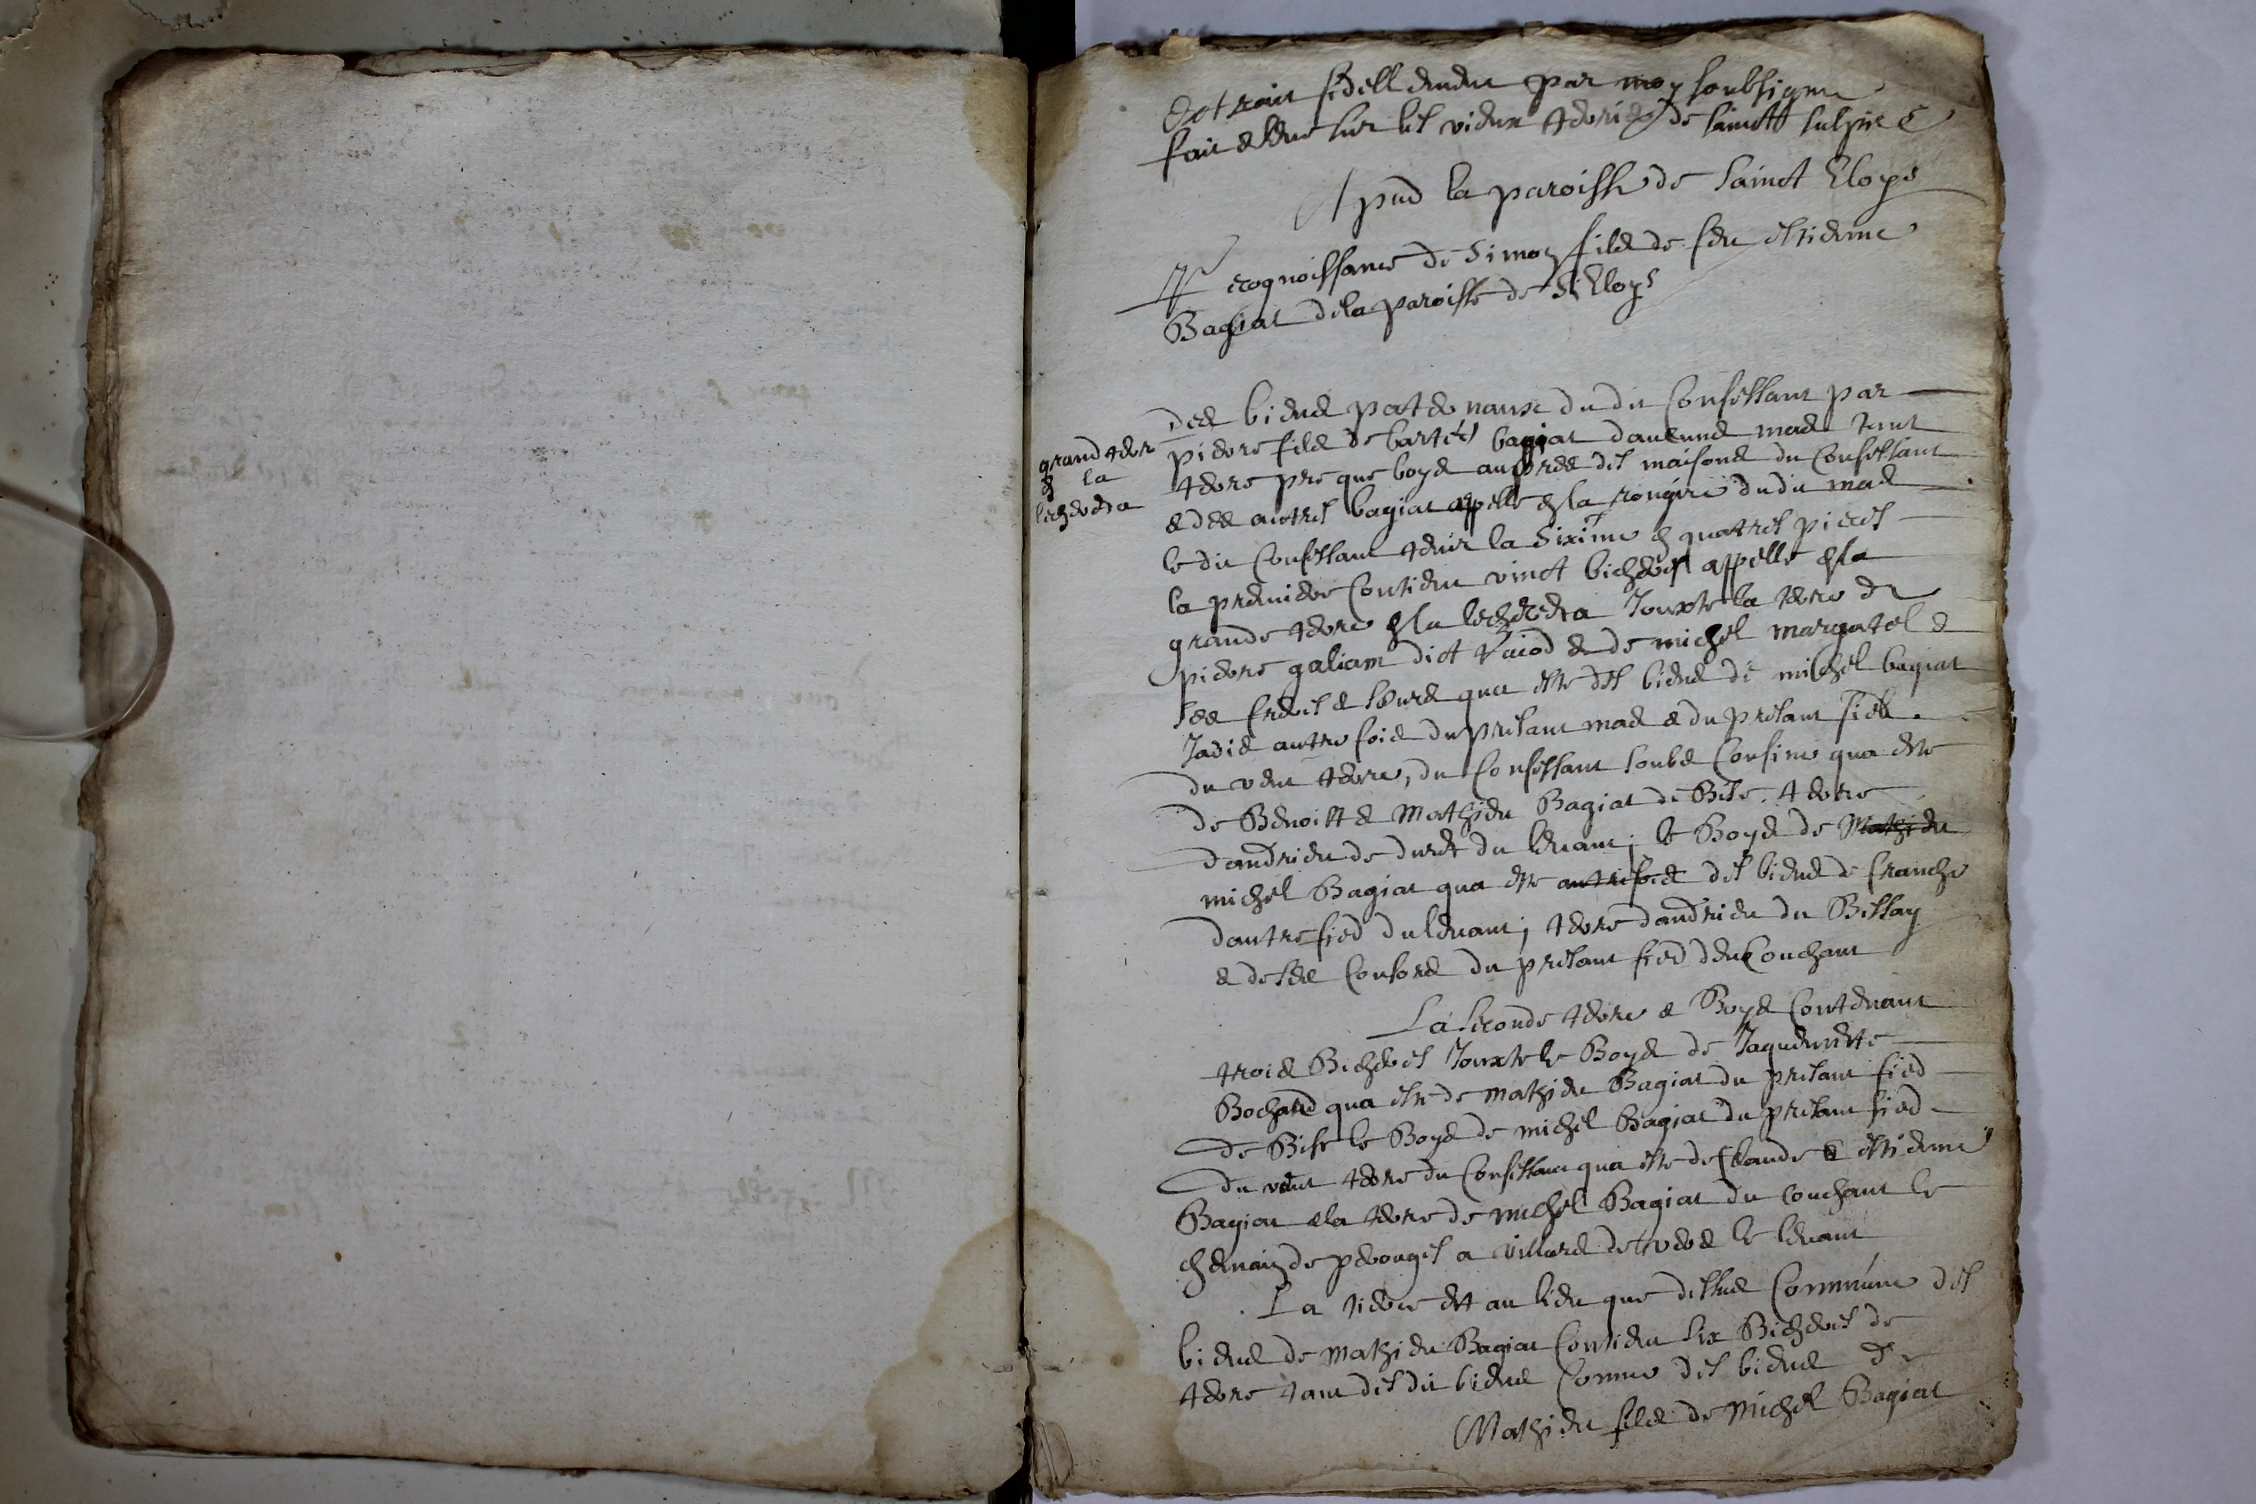 Extrait fidellement par moy soubsigne
fait & leve sur les vieux terriers de sainctt sulpice
Apud la paroisse de Sainct Eloys
Recognoissance de Simon filz de feu estienne
Bagiat de la paroisse de St Eloys
grand terr
en la
lecheretta
Des biens paternaux dudit Confessant par
pierre filz de bagiat mas tient
terre pre que boys aupres des maisons du Confessant
& des autres bagiat appelle en la rongire dudit mas
ledit Confessant tenir la Sixime en quatres pieces
la premiere Contient vinct bicherés appelle en la
grande terre en la lecheretta Jouxte la terre de
pierre galiam dict & de michel margatel &
ses freres & seurs qua este des biens de milchel bagiat
Jadis autre fois du presant mas & du presant fied
du vent terre, du Confessant soubs Confins qua este
de Benoistt & Mathieu Bagiat de Bise. terre
dandrieu de du levant; le Boys de Mathieu
michel Bagiat qua este autrefois des biens de franche
dautre fied du levant; terre dandrieu du Bessay
& de ses Consors du presant fied deu Couchant
La seconde terre & Boys Contenant
trois Bicherés Jouxte le Boys de Jaquemette
Bochard qua este de mathieu Bagiat du presant fied
de Bise le Boys de michel Bagiat du presant fied
du vent terre du Confessant qua este de Claude & estienne
Bagiat & la terre de michel Bagiat du couchant le
chemain de perouges a villars devers le levant
La tierce est au lieu que dessus Commune des
biens de mathieu Bagiat Contient six Bicherés de
terre tant des dit biens Comme des biens de
Mathieu filz de michel Bagiat